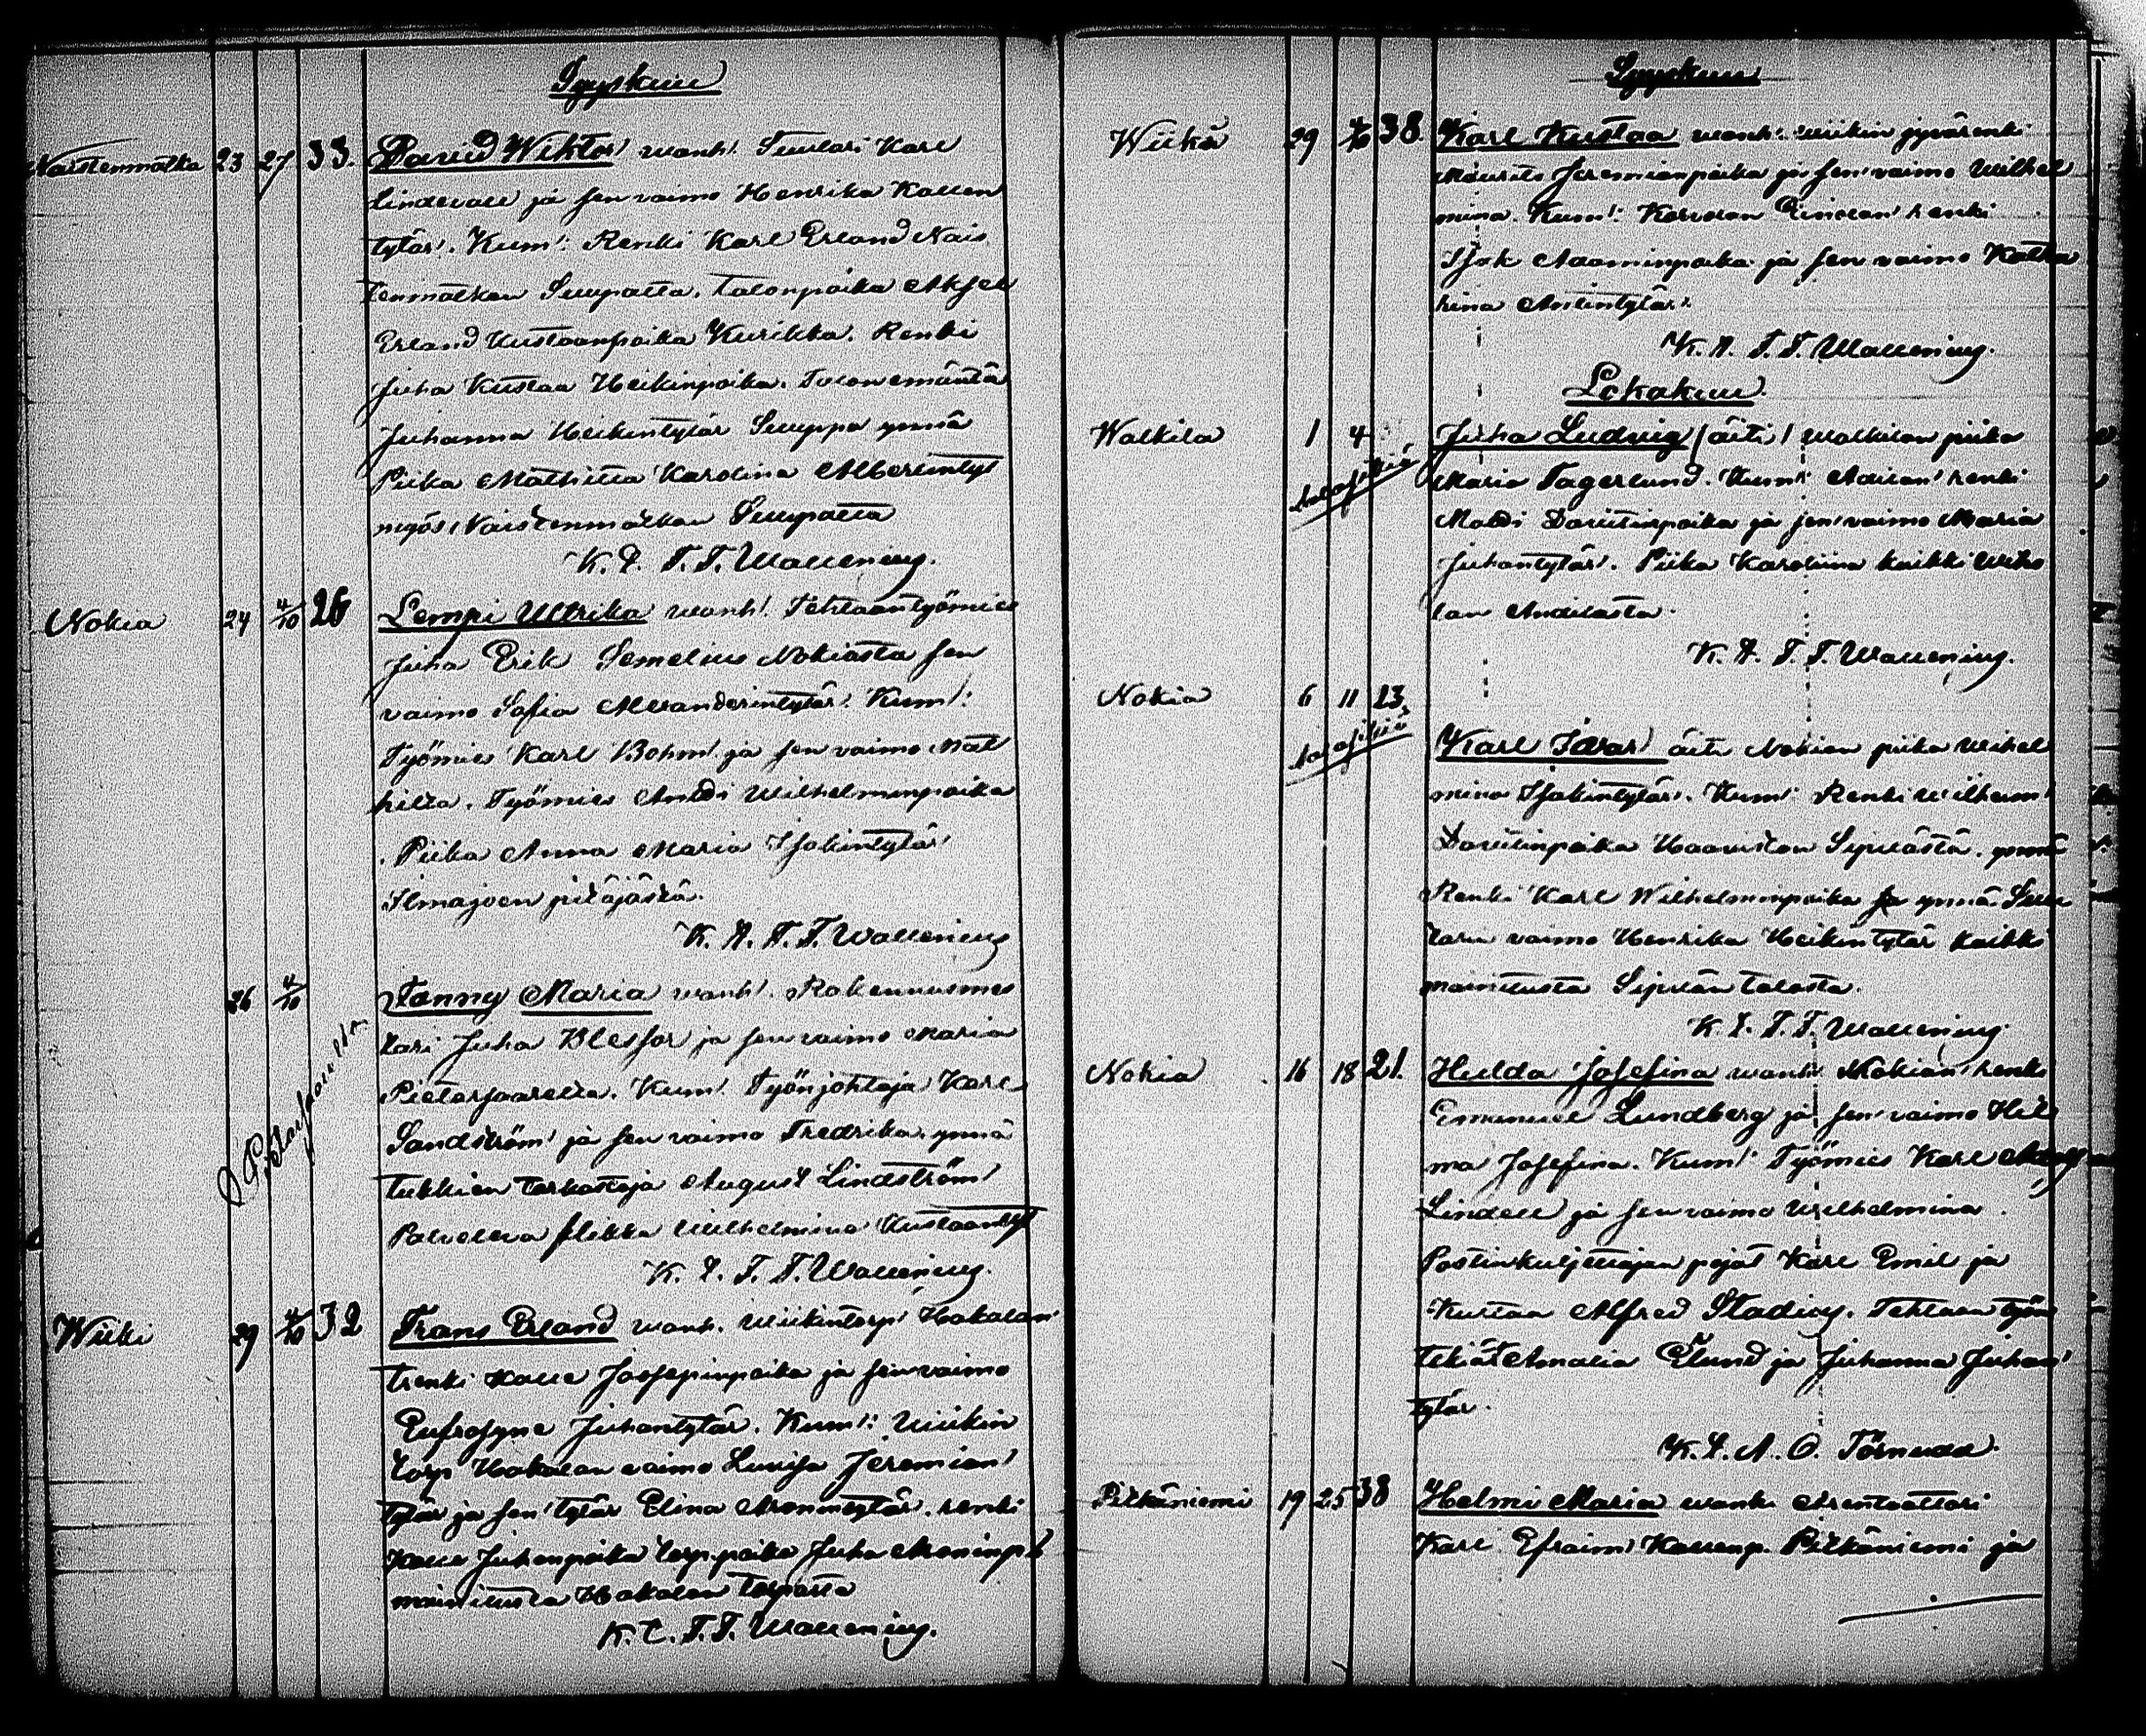 Syyskuu
Naistenmatka 23 27 33. David Wiktor wanh. Suutari Karl
Lindevall ja sen vaimo Henrika Kallen
tytär. Kum: Renki Karl Erland Nais
tenmatkan Suupalta. Talonpoika Aksel
Erland Kustaanpoika Kurikka. Renki
Juha Kustaa Heikinpoika. Talonemäntä
Juhanna Heikintytär Suuppa ynnä
Piika Mathilta Karolina Albertintyt
myös Naistenmatkan Suupalta
K. T. T. Wallenius.
Nokia 24 4/10 26 Lempi Ulrika wanh. Tehtaantyömies
Juha Erik Semelius Nokiasta sen
vaimo Sofia Alexanderintytär. Kum:
Työmies Karl Bohm ja sen vaimo Mat
hilta. Työmies Antti Wilhelminpoika
Piika Anna Maria Isakintytär
Ilmajoen pitäjästä.
K. A. T. T. Wallenius
26 4/10 Fanny Maria wanh. Rakennusmes
tari Juha Klesfor ja sen vaimo Maria
Pietarsaarella. Kum. Työnjohtaja Karl
Sandström ja sen vaimo Fredrika. ynnä
tukkien tarkastaja August Lindström
Palveleva flikka Wilhelmina Kustaantyt
K. T. T. Wallenius.
Wiiki 29 4/10 32 Frans Erland wanh. Wiikintorp Hakalan
trenki Kalle Joosepinpoika ja sen vaimo
Eufrosyne Juhantytär. Kum: Wiikin
torp Hakalan vaimo Luvisa Jeremian
tytär ja sen tytär Elina Aronintytär. renki
Kalle Juhanpoika torp.poika Juha Aroninp.
mainitusta Hakalan torpasta
K. T. T. Wallenius.
Syyskuu
Wiikä 29 4/10 38. Karl Kustaa wanh. Wiikin jyvärenki
Maurits Jeremianpoika ja sen vaimo Wilhel
mina. Kum: renki
Isak Adaminpoika ja sen vaimo Katha
rina Antintytär.
K. A. T. T. Wallenius.
Lokakuu.
Walkila 1 4 Juha Ludvig (äiti) Walkilan piika
Maria Fagerlund. Kum: renki
Matti Davitinpoika ja sen vaimo Maria
Juhantytär. Piika Karoliina kaikki
lan
K. A. T. T. Wallenius.
Nokia 6 11 23.
Karl Ivar äiti Nokian piika Wilhel
mina Isakintytär. Kum: Renki Wilhelm
Davitinpoika Haaviston Sipilästä. ynnä
Renki Karl Wilhelminpoika ja ynnä Suu
tarin vaimo Henrika Heikintytär kaikki
mainitusta Sipilän talosta.
K. T. T. Wallenius.
Nokia 16 18 21. Hulda Josefina wanh. Nokian renki
Emanuel Lundberg ja sen vaimo Hil
ma Josefina. Kum: Työmies Karl Adolf
Lindell ja sen vaimo Wilhelmina.
Postinkuljettajan pojat Karl Emil ja
Kustaa Alfred Stadius. Tehtaan työn
tekiät Amalia Elund ja Juhanna Juhan
tytär.
K. A. O. Törnudd.
Pitkäniemi 19 25 38 Helmi Maria wanh. Arentaattori
Karl Efraim Kallenp. Pitkäniemi ja